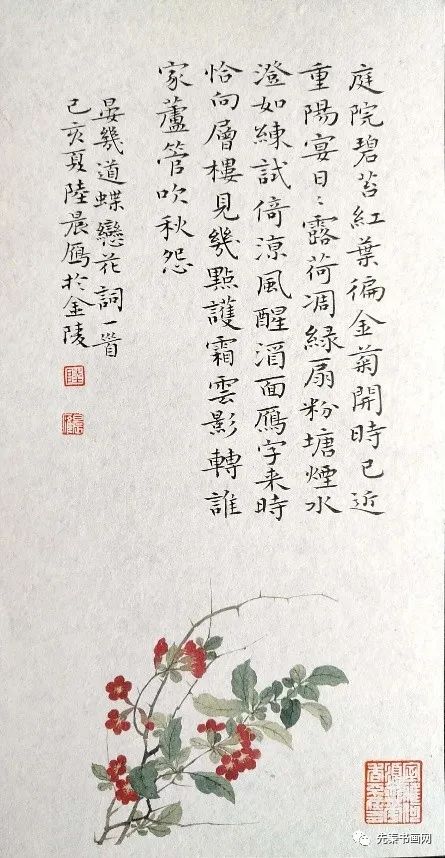 庭院碧苔紅葉徧金菊開時已近
重陽宴日〻露荷凋緑扇粉塘煙水
澄如練試倚涼風醒酒面鴈字来時
恰向層樓見幾點護霜雲影轉誰
家蘆管吹秋怨
晏幾道蝶戀花詞一首
己亥夏陸晨鴈於金陵
陸
先秦书画网